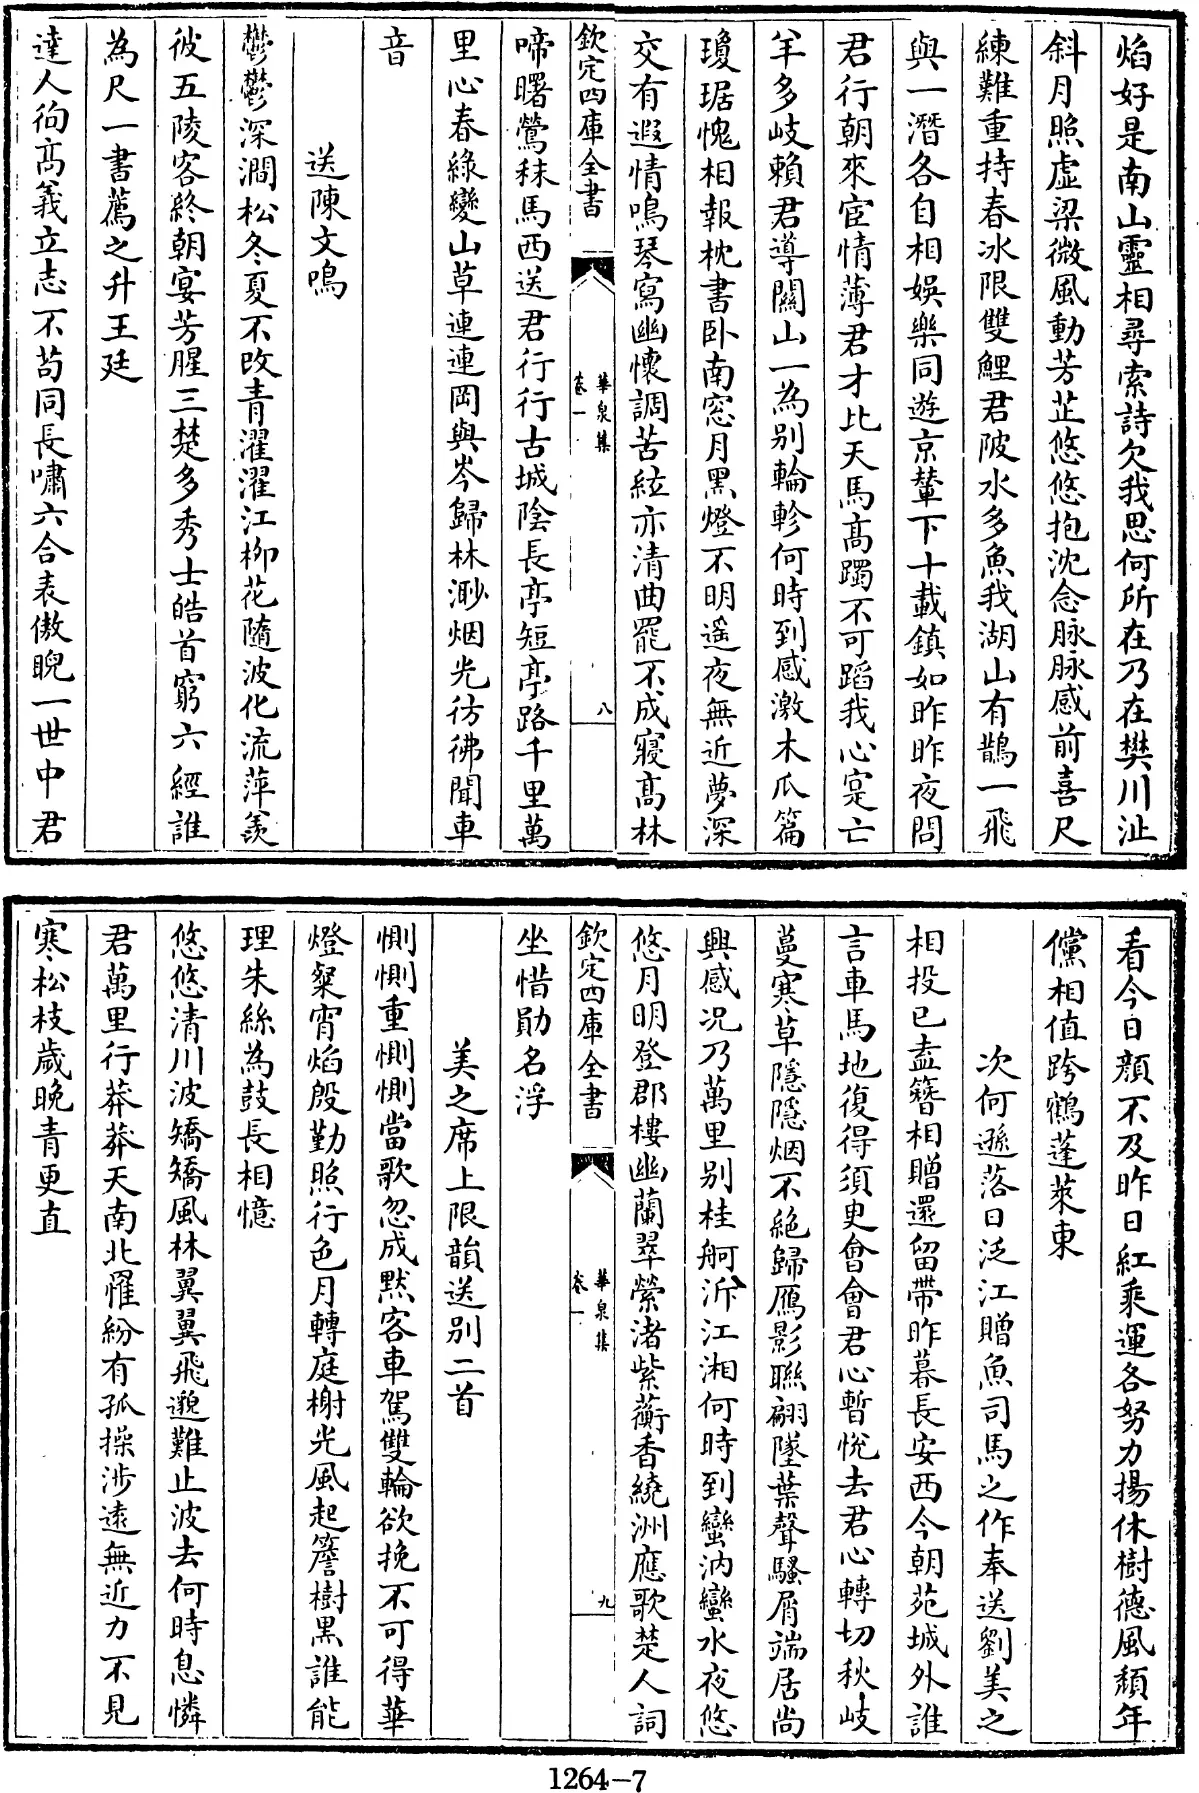 焰好是南山靈相尋索詩欠我思何所在乃在樊川沚
斜月照虚梁微風動芳芷悠悠抱沈念脉脉感前喜尺
練難重持春冰限雙鯉君陂水多魚我湖山有鵲一飛
與一潛各自相娛樂同遊京輦下十載鎮如昨昨夜問
君行朝來宦情薄君才比天馬髙躅不可蹈我心寔亡
羊多岐賴君導關山一為别輪軫何時到感激木瓜篇
瓊琚愧相報枕書卧南窓月黒燈不明遥夜無近夢深
交有遐情鳴琴寫幽懷調苦絃亦清曲罷不成寢髙林
欽定四庫全書
華泉集
卷一
八
啼曙鶯秣馬西送君行行古城陰長亭短亭路千里萬
里心春緑變山草連連岡與岑歸林渺烟光彷彿聞車
音
送陳文鳴
鬱鬱深澗松冬夏不改青濯濯江栁花隨波化流萍羨
彼五陵客終朝宴芳腥三楚多秀士皓首窮六經誰
為尺一書薦之升王廷
達人徇髙義立志不茍同長嘯六合表傲睨一世中君
看今日顔不及昨日紅乘運各努力揚休樹德風頽年
儻相值跨鶴蓬萊東
次何遜落日泛江贈魚司馬之作奉送劉美之
相投已盍簪相贈還留帶昨暮長安西今朝苑城外誰
言車馬地復得須臾會會君心暫悅去君心轉切秋岐
蔓寒草隱隱烟不絶歸鴈影聯翩墜葉聲騷屑端居尚
興感况乃萬里别桂舸泝江湘何時到蠻汭蠻水夜悠
悠月明登郡樓幽蘭翠縈渚紫蘅香繞洲應歌楚人詞
欽定四庫全書
華泉集
卷一
九
坐惜勛名浮
美之席上限韻送别二首
惻惻重惻惻當歌忽成黙客車駕雙輪欲挽不可得華
燈粲宵焰殷勤照行色月轉庭榭光風起簷樹黒誰能
理朱絲為鼓長相憶
悠悠清川波矯矯風林翼翼飛邈難止波去何時息憐
君萬里行莽莽天南北罹紛有孤操涉逺無近力不見
寒松枝歲晚青更直
1264-7